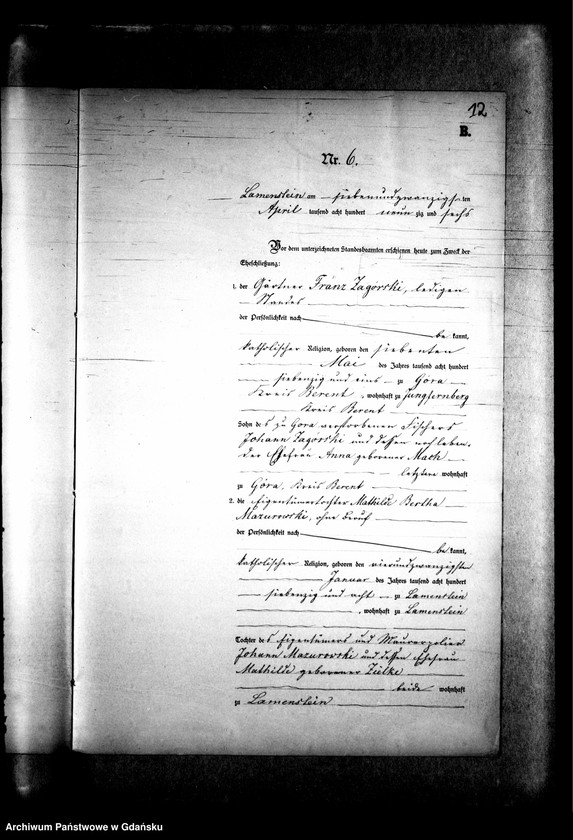 12
B.
Nr. 6.
Lamenstein am siebenundzwanzigsten
April tausend acht hundert neunzig und sechs
Vor dem unterzeichneten Standesbeamten erschienen heute zum Zweck der
Eheschließung:
1. der Gärtner Franz Zagorski, ledigen
Standes
der Persönlichkeit nach
bekannt,
katholischer Religion, geboren den siebenten
Mai des Jahres tausend acht hundert
siebenzig und eins zu Gora
Kreis Berent, wohnhaft zu Jungfernberg
Kreis Berent
Sohn des zu Gora verstorbenen Fischers
Johann Zagorski und dessen noch leben-
der Ehefrau Anna geborener Mach
letztere wohnhaft
zu Gora, Kreis Berent
2. die Eigentümertochter Mathilde Bertha
Mazurowski, ohne Beruf
der Persönlichkeit nach
bekannt,
katholischer Religion, geboren den vierundzwanzigsten
Januar des Jahres tausend acht hundert
siebenzig und acht zu Lamenstein
, wohnhaft zu Lamenstein
Tochter des Eigentümers und Maurerpolier
Johann Mazurowski und dessen Ehefrau
Mathilde geborener Zielke
beide wohnhaft
zu Lamenstein
Archiwum Państwowe w Gdańsku